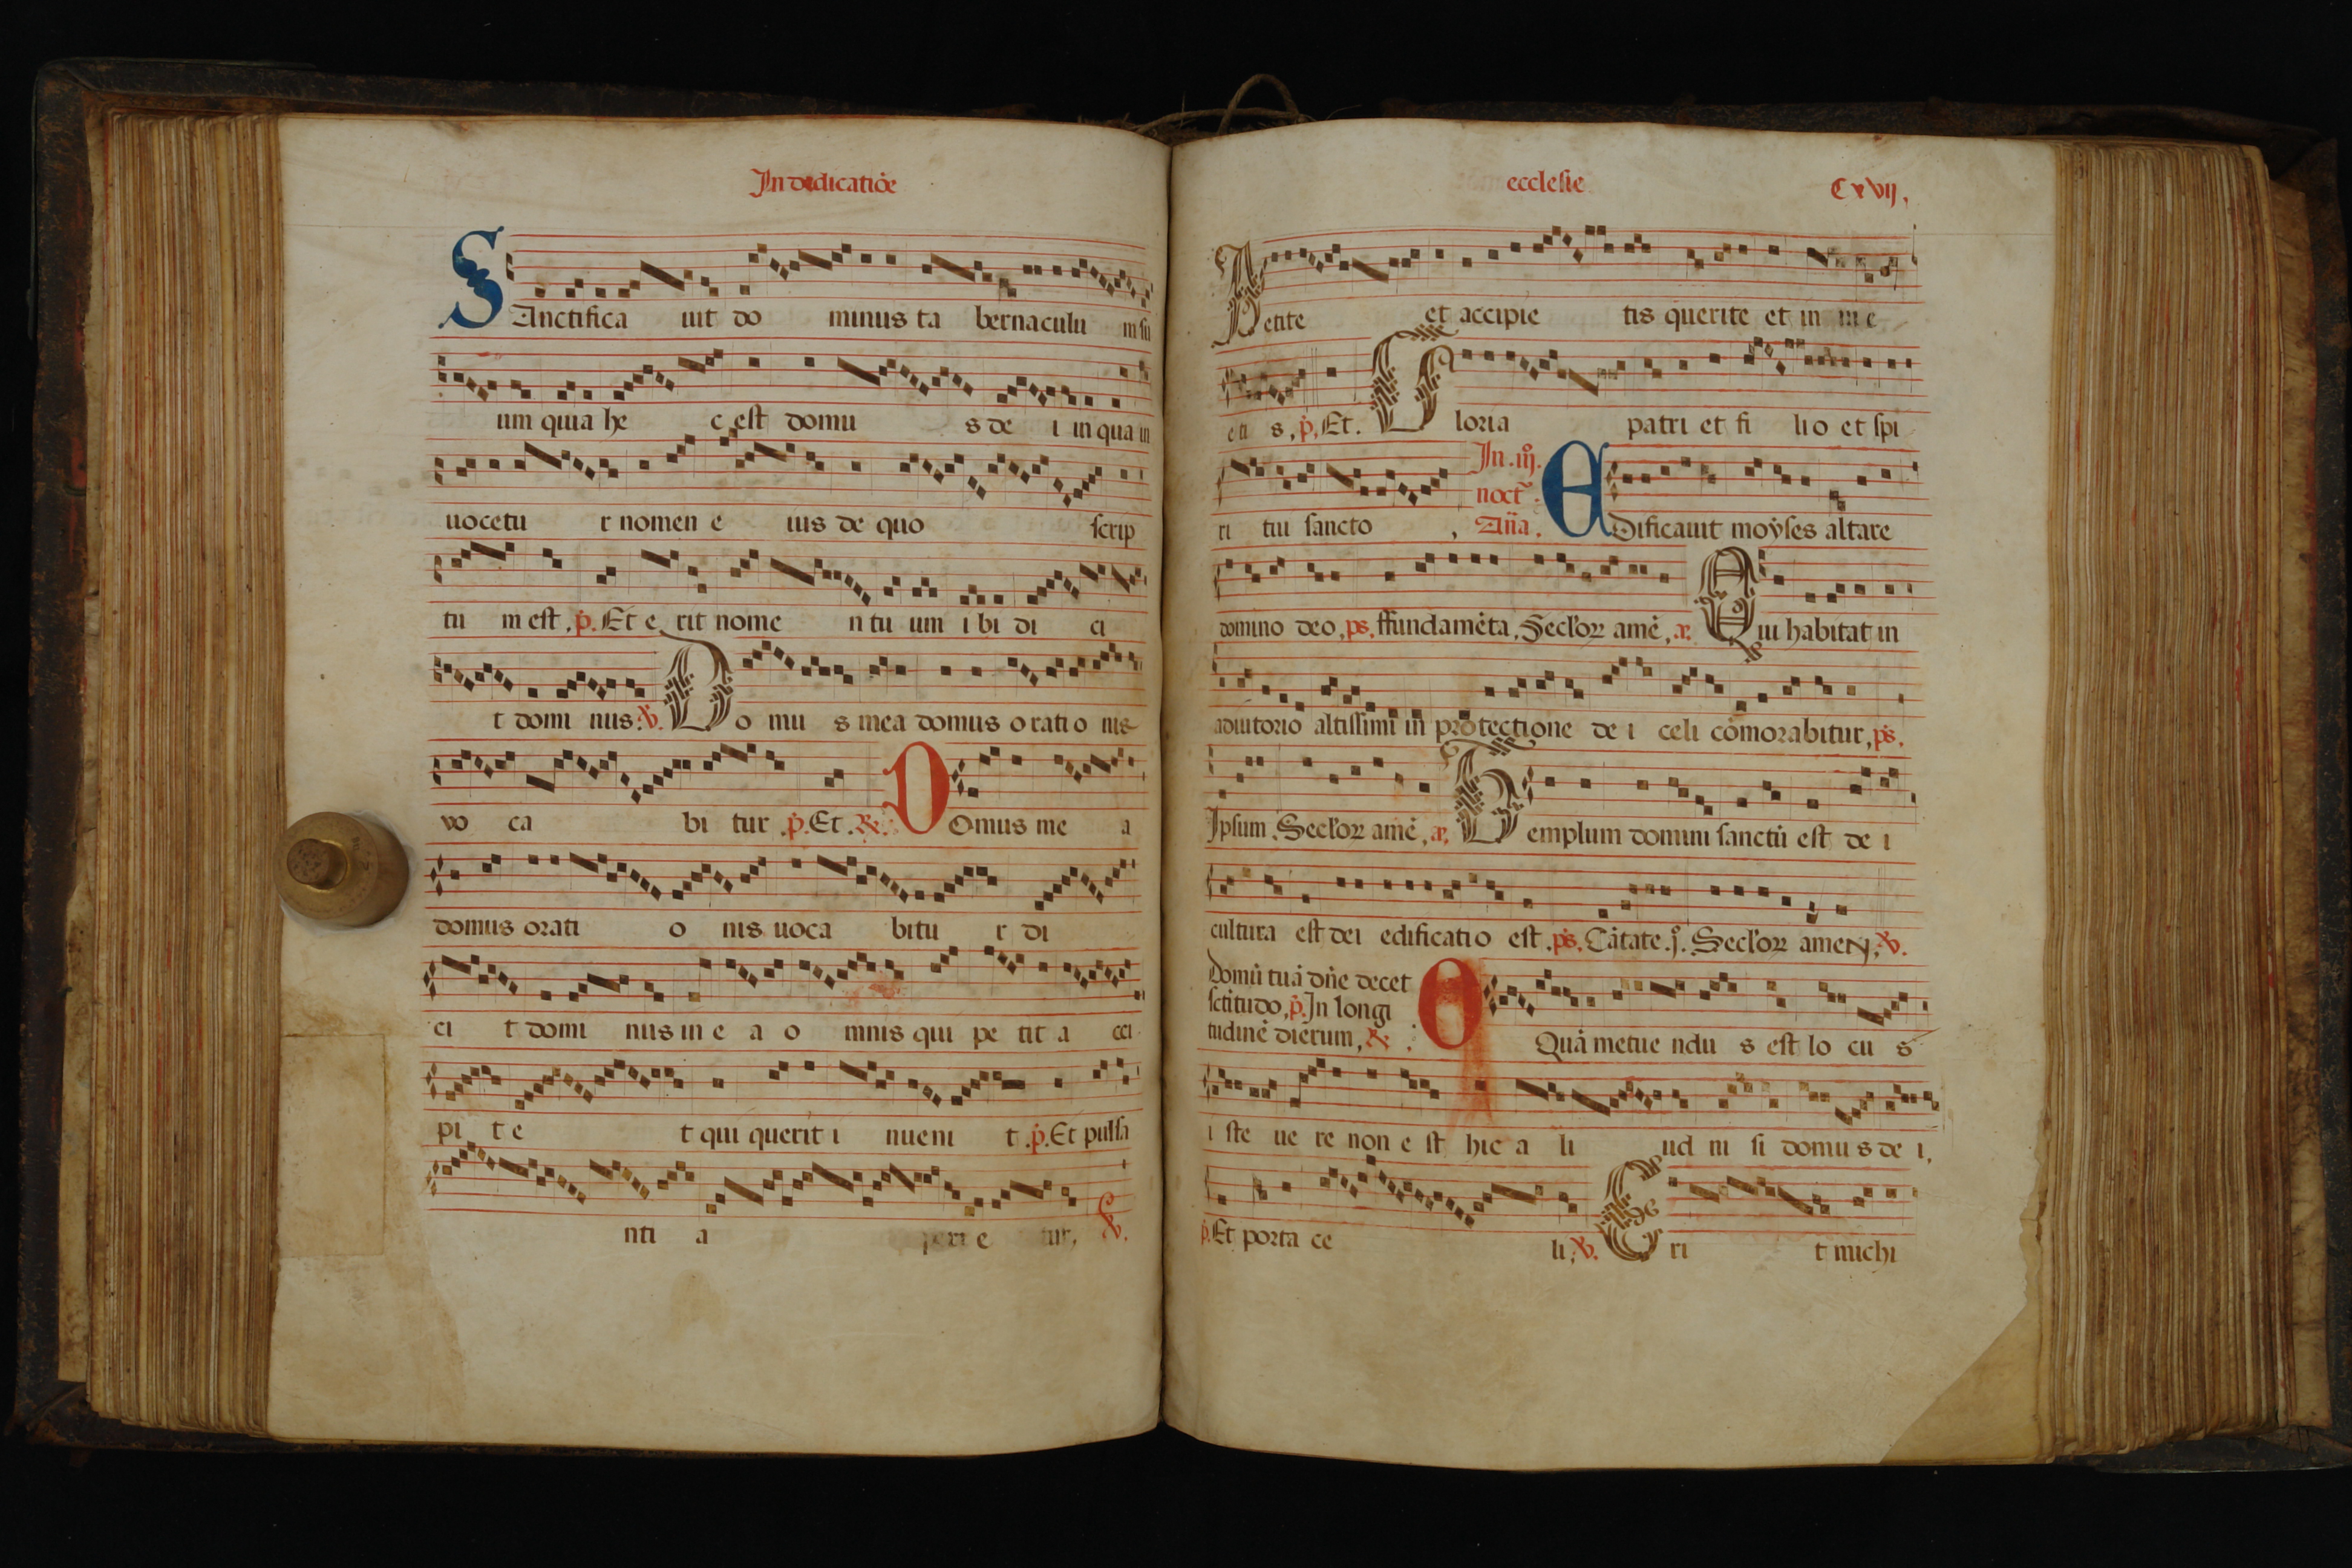 In dedicatiōe
SAnctifica uit do minus ta bernaculu m su
um quia he c est domu s de i in qua in
uocetu r nomen e ius de quo scrip
tu m est. p̄. Et e rit nome n tu um i bi di ci
t domi nus: ℣. Do mu s mea domus o rati o nis
vo ca bi tur. p̄. Et. ℟. DOmus me a
domus orati o nis uoca bitu r di
ci t domi nus in e a o mnis qui pe tit a cci
pi t e t qui querit i nueni t. p̄. Et pulsa
nti a peri e tur, ℣.
ecclesie
Cxvij.
Petite et accipie tis querite et in ue
eti s, p̄, Et. Gloria patri et fi lio et spi
ri tui sancto,
In .iij.
noct̄
Añа.
EDificauit moẏses altare
domino deo, ps. ffundamēta, Secl'oꝝ amē, æ. Qui habitat in
adiutorio altissimi in protectione de i celi cōmorabitur, ps.
Ipsum. Secl'oꝝ amē, æ. Templum domini sanctū est de i
cultura est dei edificatio est. ps. Cātate .j. Secl'oꝝ amen; ℣.
Domū tuā dn̄e decet
sctitudo, p̄. In longi
tudinē dierum, ℟:
O Quā metue ndu s est lo cu s
i ste ue re non e st hic a li ud ni si domu s de i,
p̄. Et porta ce li; ℣. Eri t michi